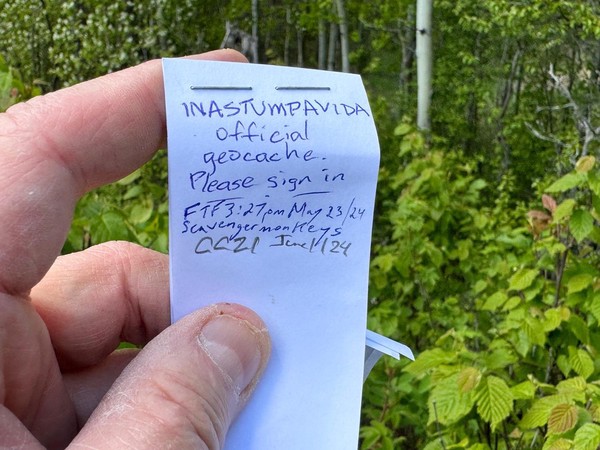 INASTUMPAVIDA
official
geocache.
Please sign in
FTF 3:27pm May 23/24
Scavengermonkeys
CCZI June 1/24